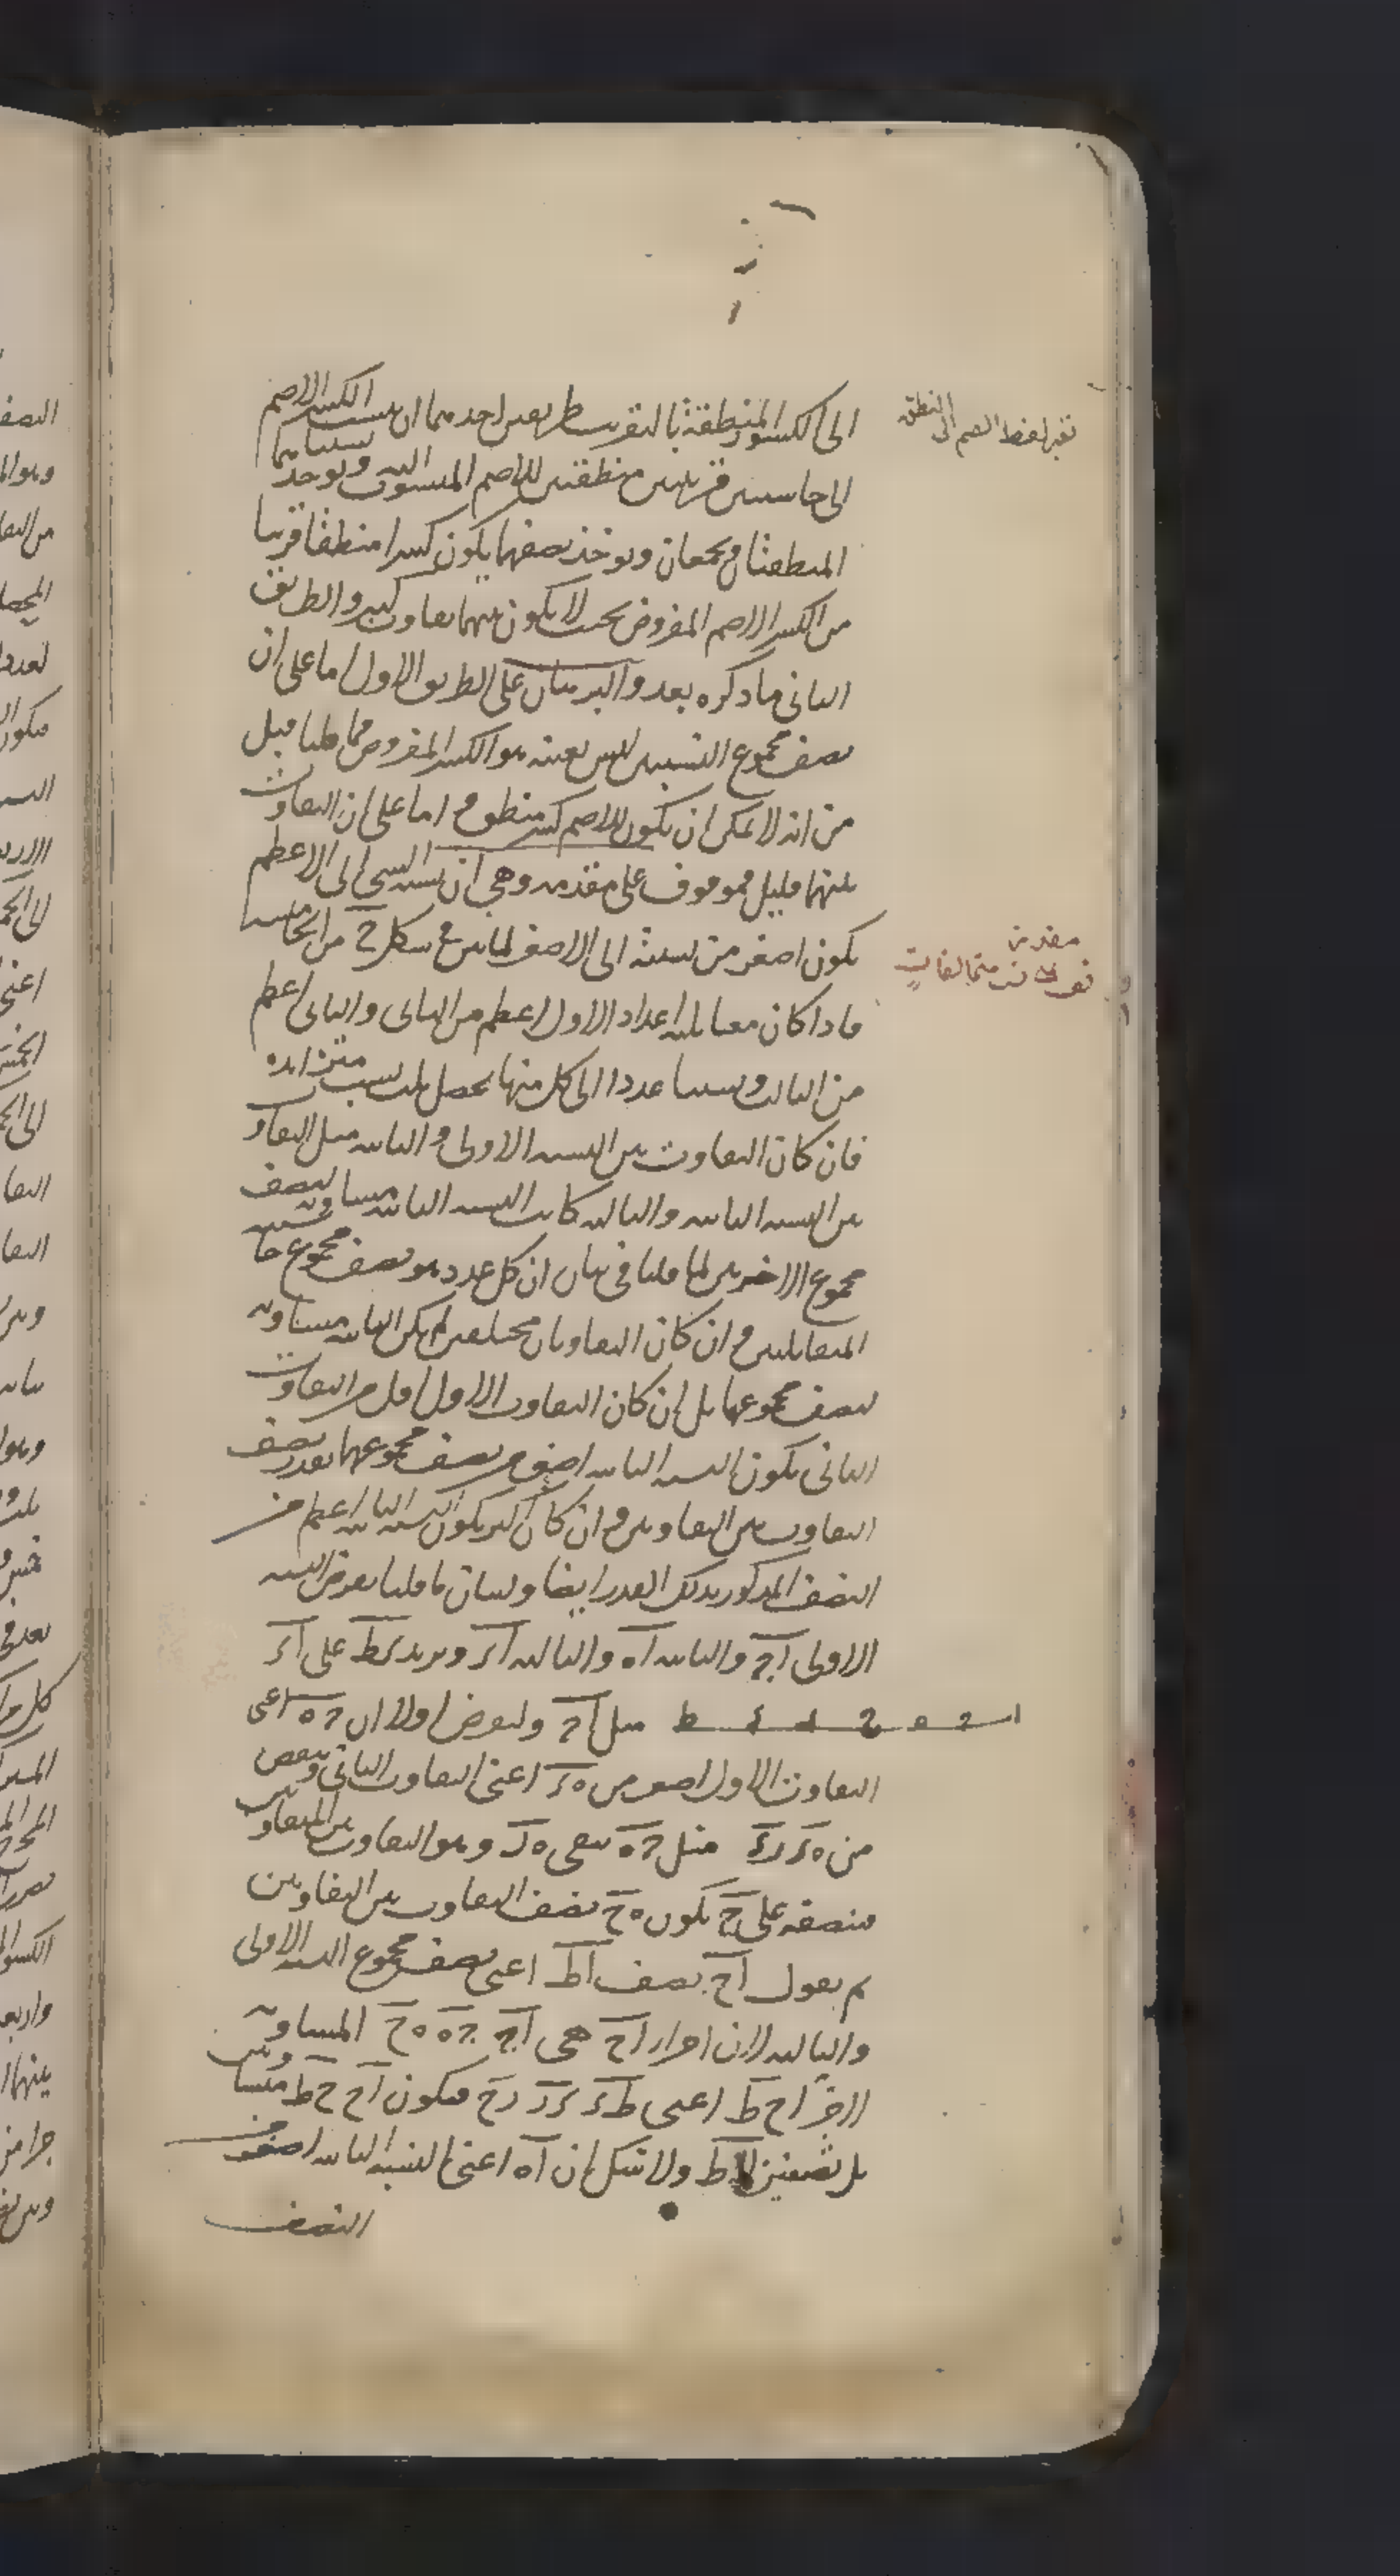 الى الكسور المنطقة بالتقريب طريقين احدهما ان ينسب الكسر الاصم
الى حاسيتين قريبتين منطقتين للاصم المنسوب اليه ويوخذ نسبتاهما
المنطقتان وتجمعان ويوخذ نصفهما يكون كسرا منطقا قريبا
من الكسر الاصم المفروض بحيث لا يكون بينهما تفاوت كثير والطريق
الثانى ما ذكره بعد والبرهان على الطريق الاول اما على ان
نصف مجموع النسبتين ليس بعينه هو الكسر المفروض فما قلنا قبل
من انه لا يمكن ان يكون للاصم كسر منطق واما على ان التفاوت
بينهما قليل فموقوف على مقدمه وهى ان نسبة الشى الى الاعظم
يكون اصغر من نسبته الى الاصغر لما بين فى شكل ح من الخامسه
فاذا كان معنا ثلثه اعداد الاول اعظم من الثانى والثانى اعظم
من الثالث ونسبنا عددا الى كل منها يحصل ثلث نسب متزايده
فان كان التفاوت بين النسبه الاولى والثانيه مثل التفاوت
بين النسبه الثانيه والثالثه كانت النسبه الثانيه مساويه لنصف
مجموع الاخريين لما قلنا فى بيان ان كل عدد هو نصف مجموع حاشيتيه
المتقابلتين وان كان التفاوتان مختلفين لم يكن الثانيه مساويه
لنصف مجموعهما بل ان كان التفاوت الاول اقل من التفاوت
الثانى يكون النسبه الثانيه اصغر من نصف مجموعهما بقدر نصف
التفاوت بين التفاوتين وان كان اكبر يكون النسبه الثانيه اعظم من
النصف المذكور بذلك القدر ايضا ولبيان ما قلنا نفرض النسبه
الاولى اج والثانيه اه والثالثه ار ونزيد رط على ار
مثل اج ولنفرض اولا ان ج ه اعنى
التفاوت الاول اصغر من ه ر اعنى التفاوت الثانى وننقص
من ه ر مثل ج ه يبقى وهو التفاوت بين التفاوتين
ننصفه على ح يكون ه ح نصف التفاوت بين التفاوتين
ثم نقول اح نصف اط اعنى نصف مجموع النسبه الاولى
والثالثه لان اجزاء اح هى اج ج ه ه ح المساويه
لاجزاء ح ط اعنى فيكون اح ح ط متساويين
بل نصفين لاط ولا شك ان اه اعنى النسبه الثانيه اصغر من
النصف
مقدمة